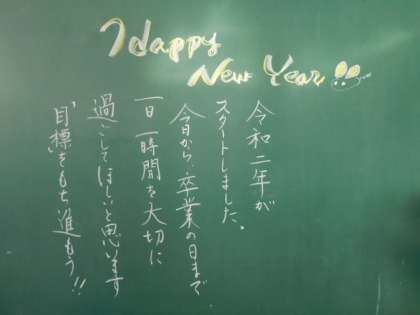 Happy
New Year
令和二年が
スタートしました。
今日から、卒業の日まで
一日一時間を大切に
過ごしてほしいと思います
"目標"をもち進もう!!